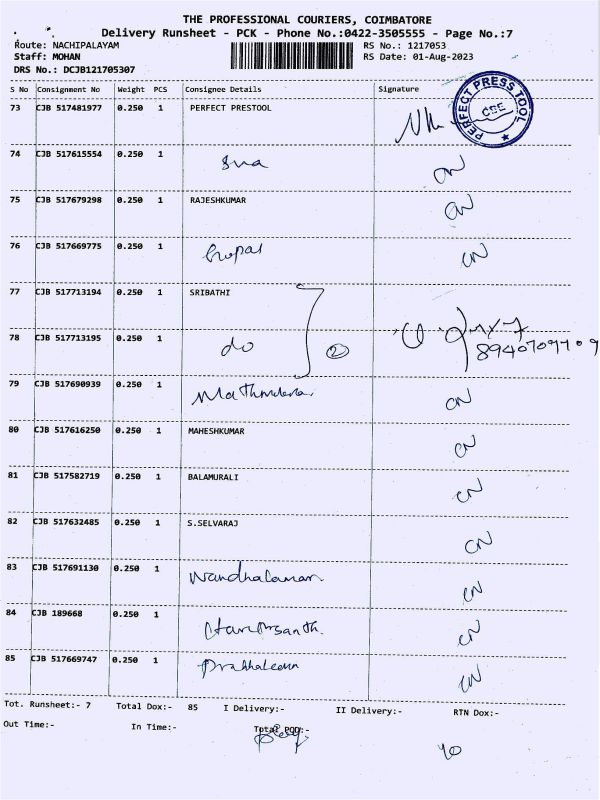 THE PROFESSIONAL COURIERS, COIMBATORE
Delivery Runsheet - PCK - Phone No.:0422-3505555 - Page No.:7
Route: NACHIPALAYAM RS No.: 1217053
Staff: MOHAN RS Date: 01-Aug-2023
DRS No.: DCJB121705307
S No Consignment No Weight PCS Consignee Details Signature
73 CJB 517481977 0.250 1 PERFECT PRESTOOL
PERFECT PRESS TOOL
CBE
74 CJB 517615554 0.250 1 CN
75 CJB 517679298 0.250 1 RAJESHKUMAR CN
76 CJB 517669775 0.250 1 Gopal CN
77 CJB 517713194 0.250 1 SRIBATHI
78 CJB 517713195 0.250 1 do 2
79 CJB 517690939 0.250 1 CN
80 CJB 517616250 0.250 1 MAHESHKUMAR CN
81 CJB 517582719 0.250 1 BALAMURALI CN
82 CJB 517632485 0.250 1 S.SELVARAJ CN
83 CJB 517691130 0.250 1 CN
84 CJB 189668 0.250 1 CN
85 CJB 517669747 0.250 1 CN
Tot. Runsheet:- 7 Total Dox:- 85 I Delivery:- II Delivery:- RTN Dox:-
Out Time:- In Time:- Total POD:-